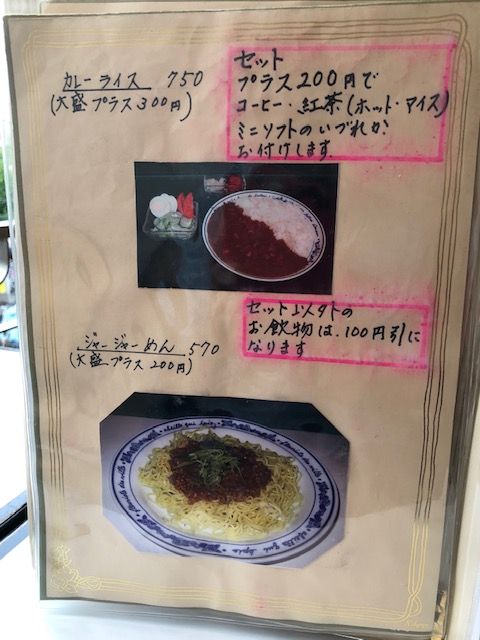 カレーライス 750
(大盛プラス300円)
セット
プラス200円で
コーヒー・紅茶(ホット・アイス)
ミニソフトのいづれか
お付けします.
セット以外の
お飲物は、100円引に
なります
ジャージャーめん 570
(大盛プラス200円)